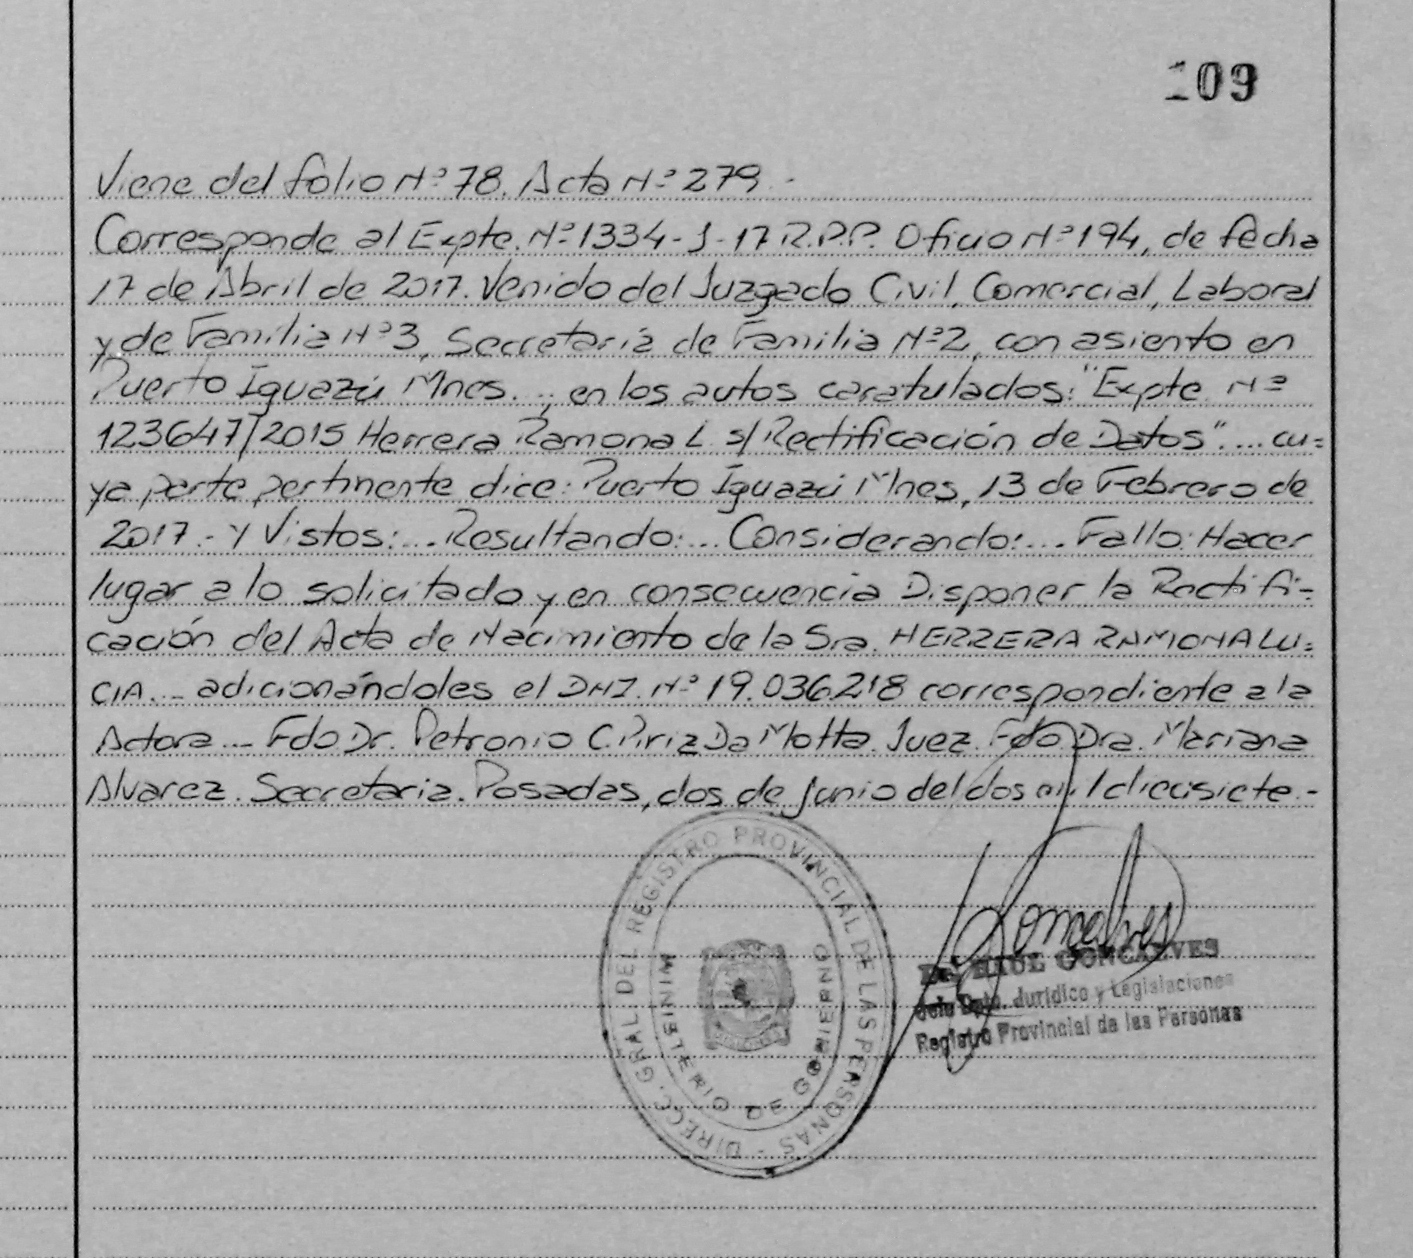 109
Viene del folio Nº 78. Acta Nº 279.-
Corresponde al Expte. Nº 1334-J-17 R.P.P. Oficio Nº 194, de fecha
17 de Abril de 2017. Venido del Juzgado Civil, Comercial, Laboral
y de Familia Nº 3, Secretaría de Familia Nº 2, con asiento en
Puerto Iguazú Mnes. , en los autos caratulados: "Expte Nº
123647/2015 Herrera Ramona L. s/ Rectificación de Datos"... cu=
ya parte pertinente dice: Puerto Iguazú Mnes, 13 de Febrero de
2017.- Y Vistos:... Resultando:... Considerando:... Fallo: Hacer
lugar a lo solicitado y en consecuencia Disponer la Rectifi-
cación del Acta de Nacimiento de la Sra. HERRERA RAMONA LU=
CIA... adicionándoles el DNI. Nº 19.036.218 correspondiente a la
Actora... Fdo Dr. Petronio C. Piriz Da Motta. Juez. Fdo Dra. Mariana
Alvarez. Secretaria. Posadas, dos de junio del dos mil diecisiete.-
DIRECC. GRAL. DEL REGISTRO PROVINCIAL DE LAS PERSONAS -
MINISTERIO DE GOBIERNO
MISIONES
Goncalves
Dr. RAUL GONCALVES
Jefe Dpto. Jurídico y Legislaciones
Registro Provincial de las Personas